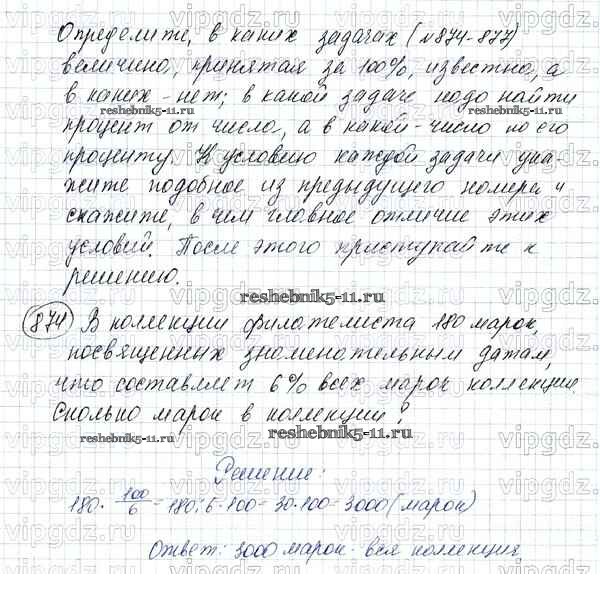 Определите, в каких задачах (№874-877)
величина, принятая за 100%, известна, а
в каких - нет; в какой задаче надо найти
reshebnik5-11.ru
процент от числа, а в какой - число по его
проценту. К условию каждой задачи ука-
жите подобное из предыдущего номера и
скажите, в чем главное отличие этих
условий. После этого приступайте к
решению.
reshebnik5-11.ru
874 В коллекции филателиста 180 марок,
посвященных знаменательным датам,
что составляет 6% всех марок коллекции.
Сколько марок в коллекции?
reshebnik5-11.ru
reshebnik5-11.ru
Решение:
180 · 100/6 = 180:6·100 = 30·100 = 3000 (марок)
Ответ: 3000 марок - вся коллекция